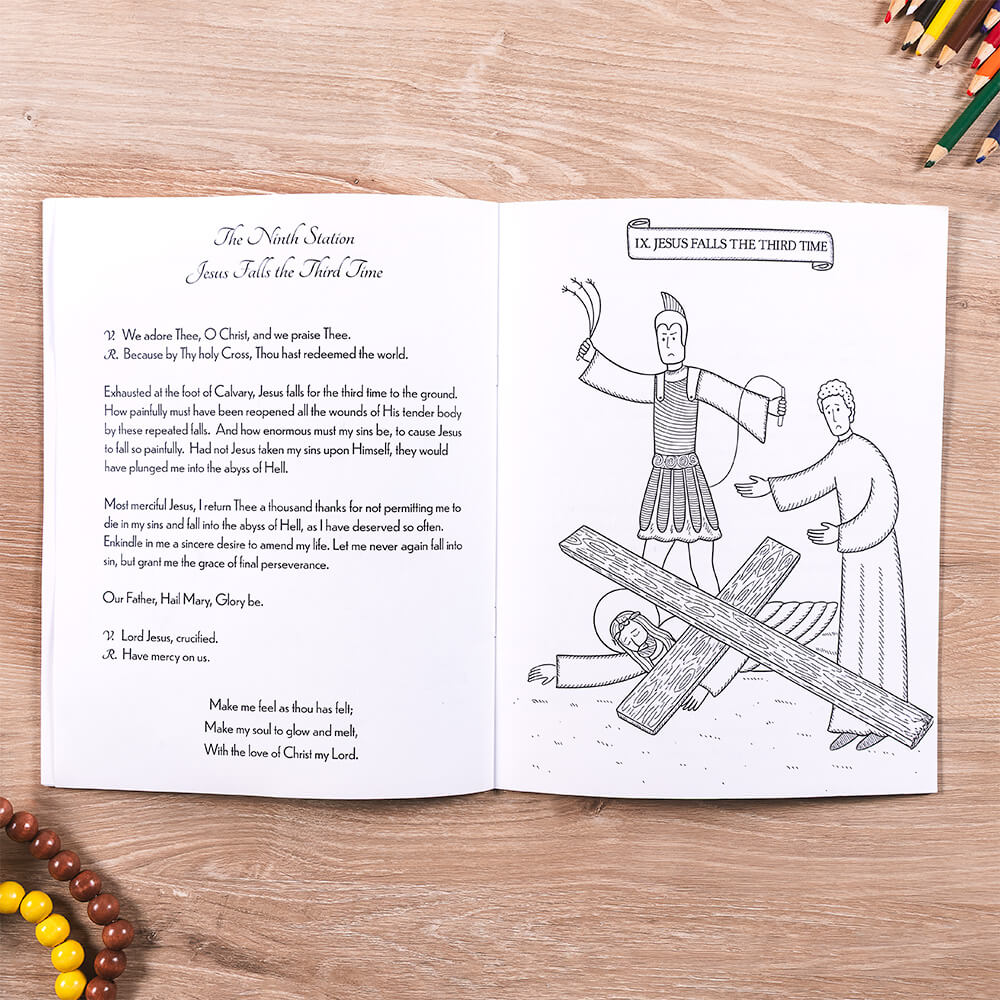 The Ninth Station
Jesus Falls the Third Time
V. We adore Thee, O Christ, and we praise Thee.
R. Because by Thy holy Cross, Thou hast redeemed the world.
Exhausted at the foot of Calvary, Jesus falls for the third time to the ground.
How painfully must have been reopened all the wounds of His tender body
by these repeated falls. And how enormous must my sins be, to cause Jesus
to fall so painfully. Had not Jesus taken my sins upon Himself, they would
have plunged me into the abyss of Hell.
Most merciful Jesus, I return Thee a thousand thanks for not permitting me to
die in my sins and fall into the abyss of Hell, as I have deserved so often.
Enkindle in me a sincere desire to amend my life. Let me never again fall into
sin, but grant me the grace of final perseverance.
Our Father, Hail Mary, Glory be.
V. Lord Jesus, crucified.
R. Have mercy on us.
Make me feel as thou has felt;
Make my soul to glow and melt,
With the love of Christ my Lord.
IX. JESUS FALLS THE THIRD TIME